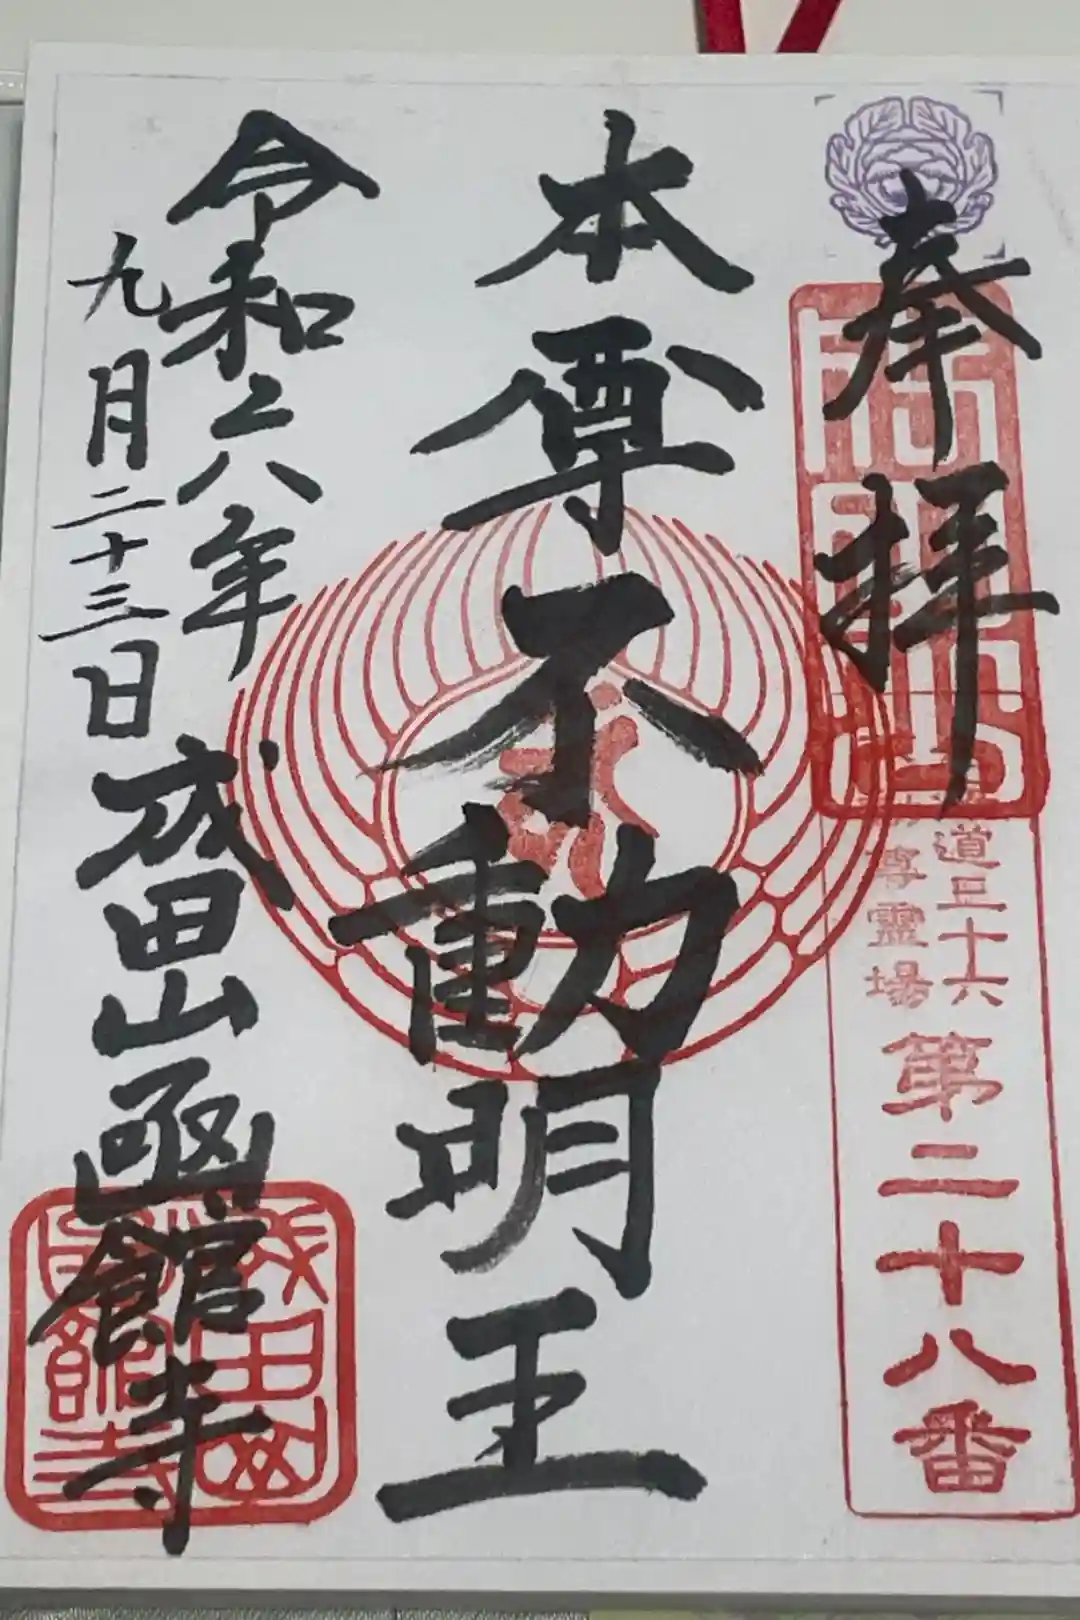 奉拝
道三十六
尊霊場
第二十八番
本尊不動明王
令和六年
九月二十三日
成田山函館寺
成田山
函館寺